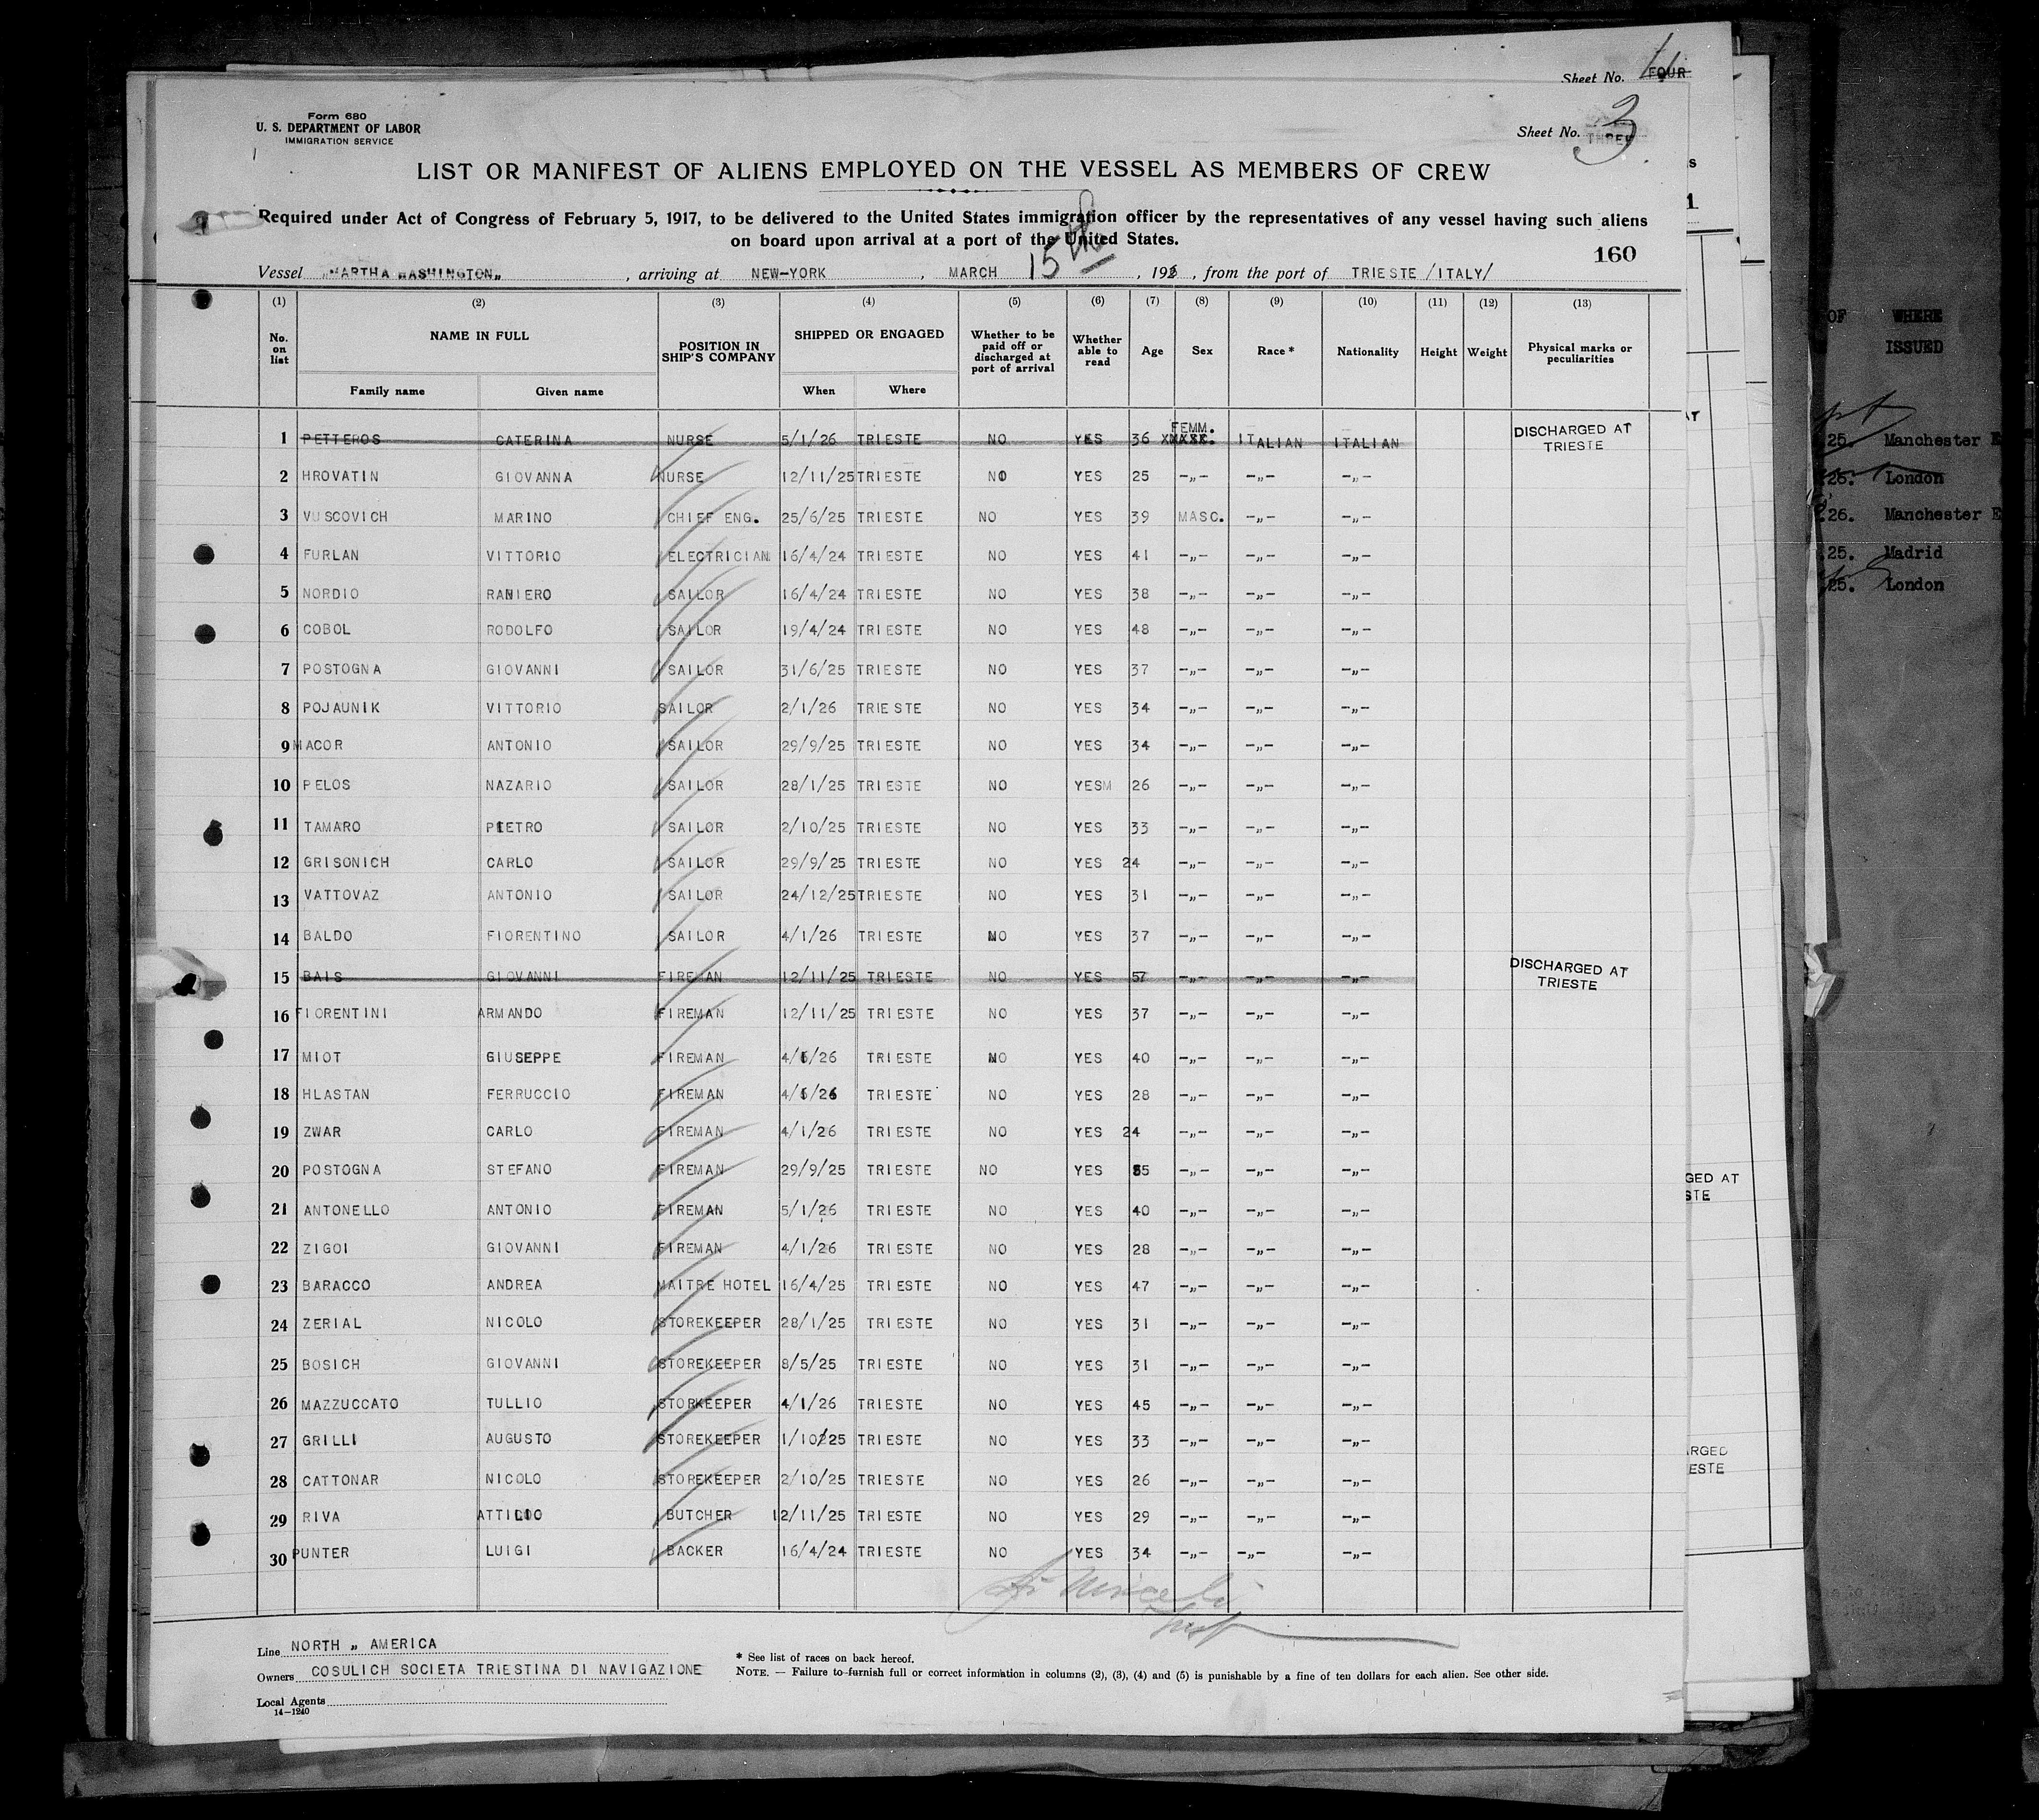 Sheet No. FOUR
Form 680
U. S. DEPARTMENT OF LABOR
IMMIGRATION SERVICE
Sheet No. THREE 3
LIST OR MANIFEST OF ALIENS EMPLOYED ON THE VESSEL AS MEMBERS OF CREW
Required under Act of Congress of February 5, 1917, to be delivered to the United States immigration officer by the representatives of any vessel having such aliens
on board upon arrival at a port of the United States.
160
Vessel „MARTHA WASHINGTON„ , arriving at NEW-YORK , MARCH 15th , 1926 , from the port of TRIESTE /ITALY/
(1) (2) (3) (4) (5) (6) (7) (8) (9) (10) (11) (12) (13)
No. on list NAME IN FULL POSITION IN SHIP'S COMPANY SHIPPED OR ENGAGED Whether to be paid off or discharged at port of arrival Whether able to read Age Sex Race * Nationality Height Weight Physical marks or peculiarities
Family name Given name When Where
1 PETTEROS CATERINA NURSE 5/1/26 TRIESTE NO YES 36 FEMM. ITALIAN ITALIAN DISCHARGED AT TRIESTE
2 HROVATIN GIOVANNA NURSE 12/11/25 TRIESTE NO YES 25 -„- -„- -„-
3 VUSCOVICH MARINO CHIEF ENG. 25/6/25 TRIESTE NO YES 39 MASC. -„- -„-
4 FURLAN VITTORIO ELECTRICIAN 16/4/24 TRIESTE NO YES 41 -„- -„- -„-
5 NORDIO RANIERO SAILOR 16/4/24 TRIESTE NO YES 38 -„- -„- -„-
6 COBOL RODOLFO SAILOR 19/4/24 TRIESTE NO YES 48 -„- -„- -„-
7 POSTOGNA GIOVANNI SAILOR 31/6/25 TRIESTE NO YES 37 -„- -„- -„-
8 POJAUNIK VITTORIO SAILOR 2/1/26 TRIESTE NO YES 34 -„- -„- -„-
9 MACOR ANTONIO SAILOR 29/9/25 TRIESTE NO YES 34 -„- -„- -„-
10 PELOS NAZARIO SAILOR 28/1/25 TRIESTE NO YESM 26 -„- -„- -„-
11 TAMARO PIETRO SAILOR 2/10/25 TRIESTE NO YES 33 -„- -„- -„-
12 GRISONICH CARLO SAILOR 29/9/25 TRIESTE NO YES 24 -„- -„- -„-
13 VATTOVAZ ANTONIO SAILOR 24/12/25 TRIESTE NO YES 31 -„- -„- -„-
14 BALDO FIORENTINO SAILOR 4/1/26 TRIESTE NO YES 37 -„- -„- -„-
15 BAIS GIOVANNI FIREMAN 12/11/25 TRIESTE NO YES 57 -„- -„- -„- DISCHARGED AT TRIESTE
16 FIORENTINI ARMANDO FIREMAN 12/11/25 TRIESTE NO YES 37 -„- -„- -„-
17 MIOT GIUSEPPE FIREMAN 4/ /26 TRIESTE NO YES 40 -„- -„- -„-
18 HLASTAN FERRUCCIO FIREMAN 4/ /26 TRIESTE NO YES 28 -„- -„- -„-
19 ZWAR CARLO FIREMAN 4/1/26 TRIESTE NO YES 24 -„- -„- -„-
20 POSTOGNA STEFANO FIREMAN 29/9/25 TRIESTE NO YES -„- -„- -„-
21 ANTONELLO ANTONIO FIREMAN 5/1/26 TRIESTE NO YES 40 -„- -„- -„-
22 ZIGOI GIOVANNI FIREMAN 4/1/26 TRIESTE NO YES 28 -„- -„- -„-
23 BARACCO ANDREA MAITRE HOTEL 16/4/25 TRIESTE NO YES 47 -„- -„- -„-
24 ZERIAL NICOLO STOREKEEPER 28/1/25 TRIESTE NO YES 31 -„- -„- -„-
25 BOSICH GIOVANNI STOREKEEPER 8/5/25 TRIESTE NO YES 31 -„- -„- -„-
26 MAZZUCCATO TULLIO STORKEEPER 4/1/26 TRIESTE NO YES 45 -„- -„- -„-
27 GRILLI AUGUSTO STOREKEEPER 1/10/25 TRIESTE NO YES 33 -„- -„- -„-
28 CATTONAR NICOLO STOREKEEPER 2/10/25 TRIESTE NO YES 26 -„- -„- -„-
29 RIVA ATTILIO BUTCHER 12/11/25 TRIESTE NO YES 29 -„- -„- -„-
30 PUNTER LUIGI BACKER 16/4/24 TRIESTE NO YES 34 -„- -„- -„-
Line NORTH „ AMERICA
Owners COSULICH SOCIETA TRIESTINA DI NAVIGAZIONE
Local Agents
14-1240
* See list of races on back hereof.
NOTE. — Failure to furnish full or correct information in columns (2), (3), (4) and (5) is punishable by a fine of ten dollars for each alien. See other side.
OF WHERE
ISSUED
25. Manchester E
26. London
26. Manchester E
25. Madrid
25. London
GED AT
STE
RGED
ESTE